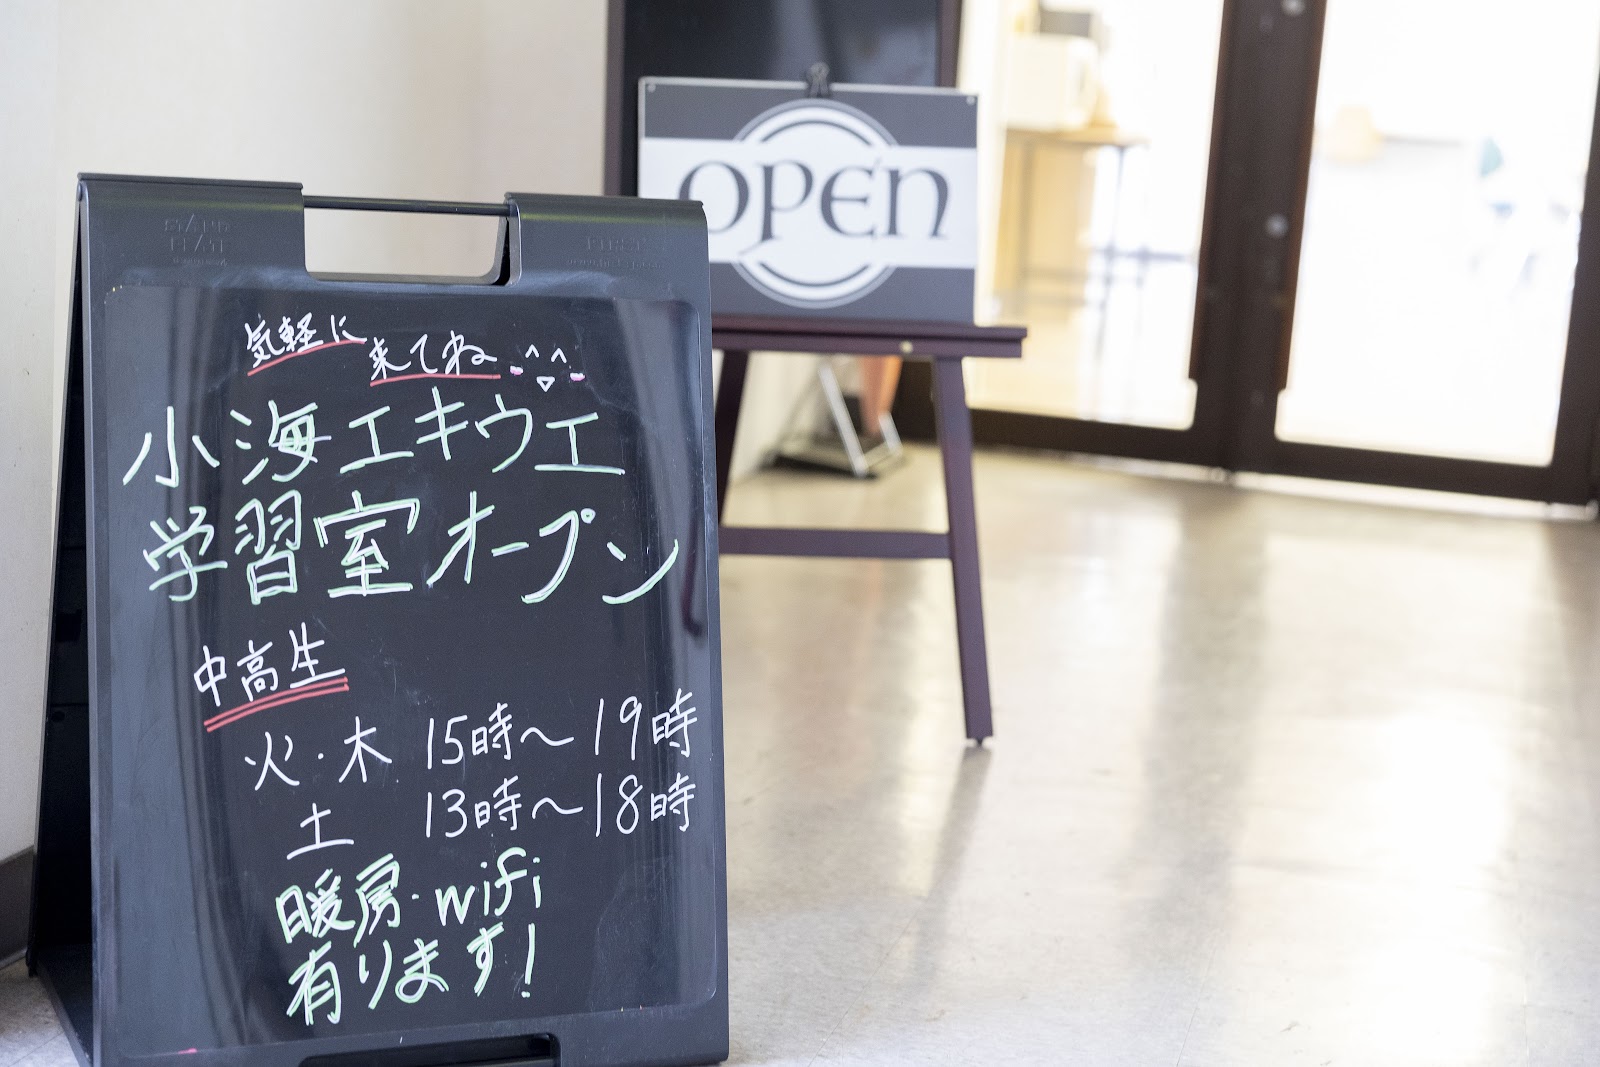 気軽に
来てね
小海エキウエ
学習室オープン
中高生
火・木 15時〜19時
土 13時〜18時
暖房・wifi
有ります!
OPEN